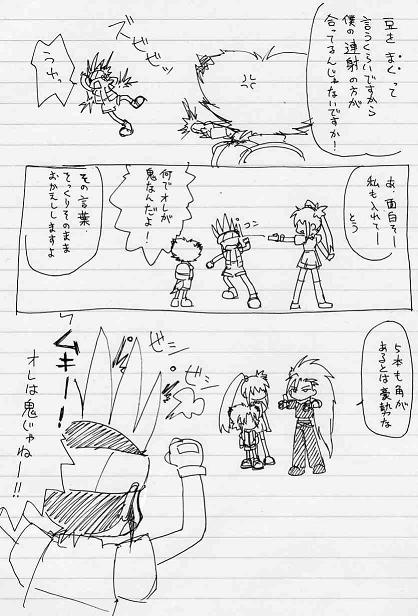 豆を まくって
言うくらいですから
僕の連射の方が
合ってるんじゃないですか！
ズゼゼゼッ
うわっ
あ、面白そー
私も入れてー
とう
コン
何でオレが
鬼なんだよ！
その言葉、
そっくりそのまま
おかえししますよ
5本も角が
あるとは豪勢な
ゼシ
ゼシ
ムキーー!!
オレは鬼じゃねー!!